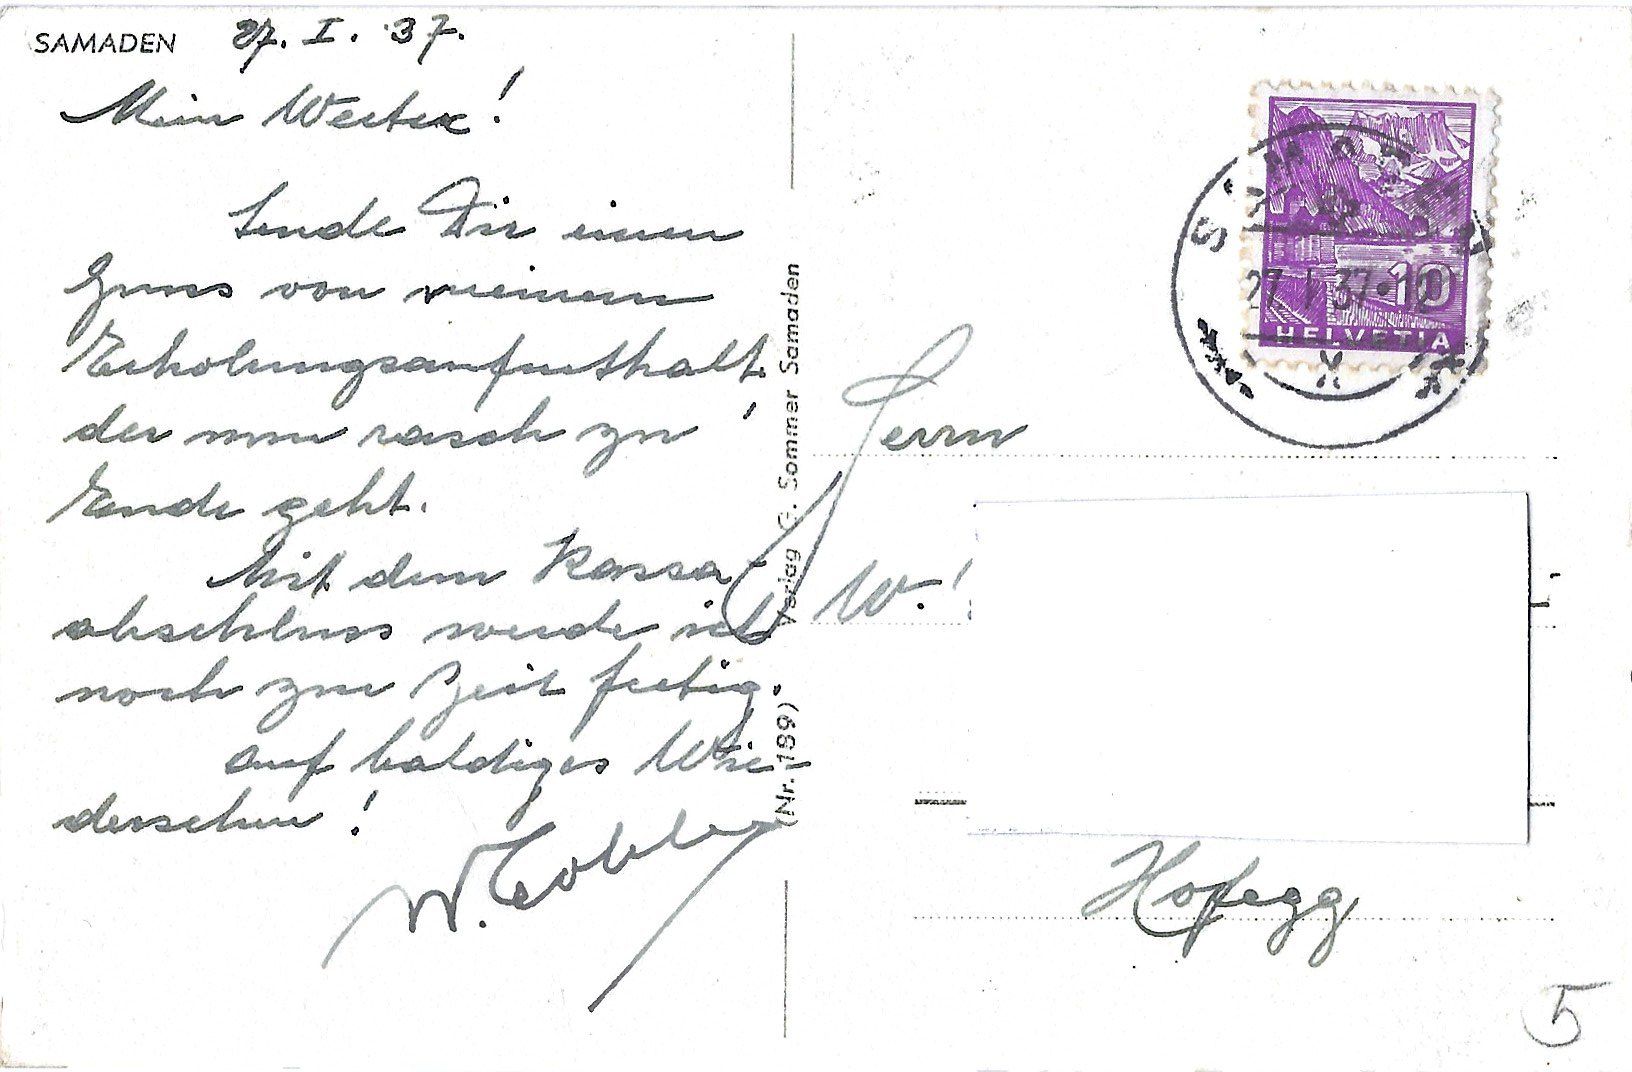 SAMADEN 27. I. 37.
Mein Werter!
Sende Dir einen
Gruss von meinem
Erholungsaufenthalt.
der nun rasch zu
Ende geht.
Mit dem Kassa-
abschluss werde ich
noch zur Zeit fertig.
Auf baldiges Wie-
dersehen!
W. Tobler
(Nr. 189) Verlag G. Sommer Samaden
27 I 37 · 10
10
HELVETIA
Herrn
W.
Hofegg
5